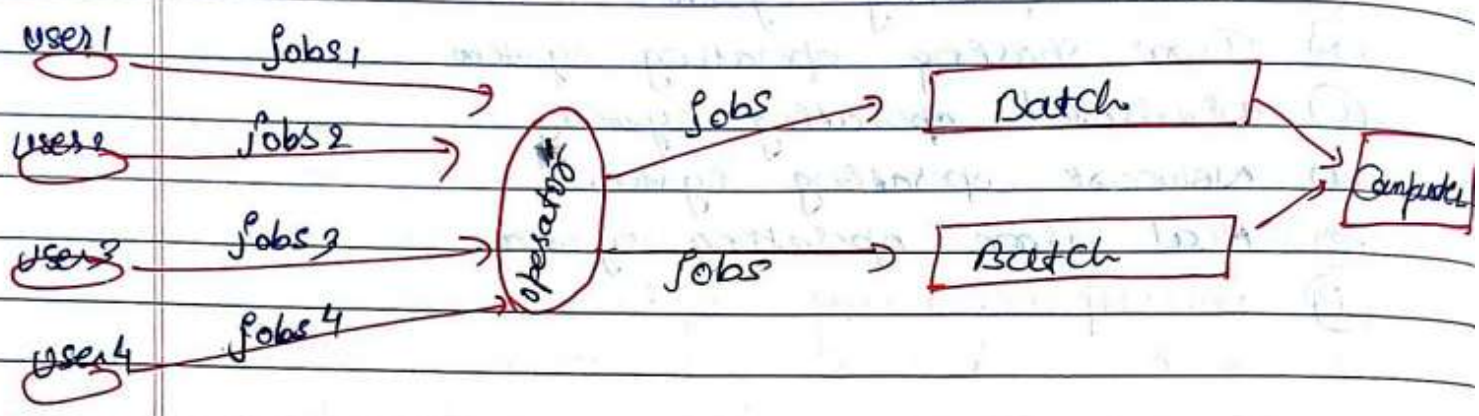 user1
jobs1
user2
jobs2
user3
jobs3
user4
jobs4
operator
jobs
Batch
jobs
Batch
Computer